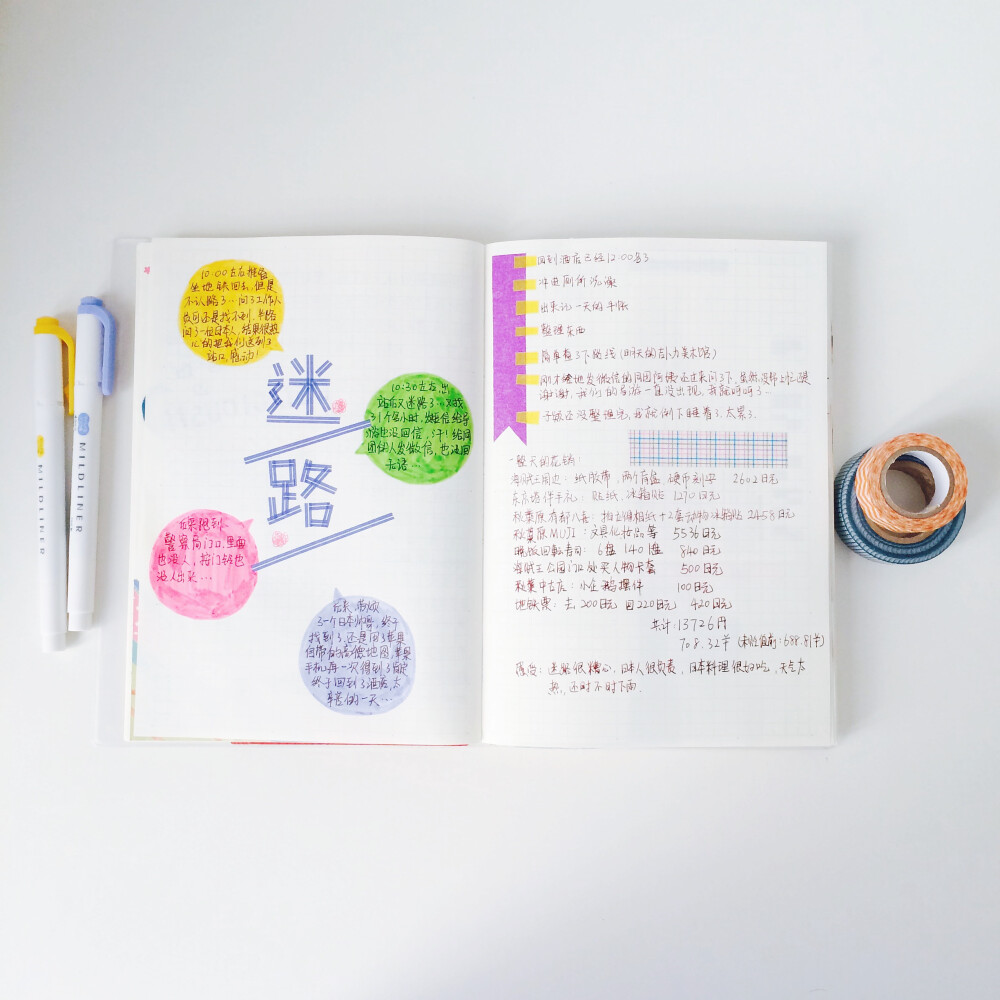 10:00左右准备
坐地铁回去,但是
不认路了…问了工作人
员可还是找不到,半路
问了一位日本人,结果很热
心的把我们送到了
站口,感动!
迷
路
10:30左右,出
站后又迷路了…找
了1个多小时,发短信给导
游也没回信,于是给同
团的人发微信,也没回
无语…
在来很到
警察局门口,里面
也没人,按门铃也
没人出来…
后来 麻烦
了一个日本帅哥,终于
找到了,还是用了苹果
自带的高德地图,苹果
手机再一次得到了肯定
终于回到了酒店,太
辛苦的一天…
MILDLINER
MILDLINER
回到酒店已经12:00多了
冲进厕所洗澡
出来记一天的手账
整理东西
简单看了下路线(明天的吉卜力美术馆)
刚才给她发微信的同团阿姨还过来问了下,虽然没帮上忙还是
谢谢,我们的导游一直没出现,我就呵呵了…
手账还没整理完,我就倒下睡着了.太累了.
一整天的花销:
海贼王周边:纸胶带,两个盲盒 硬币刻字 2602日元
东京塔伴手礼:贴纸,冰箱贴 1270日元
秋葉原有都八喜:拍立得相纸+2套动物冰箱贴 2458日元
秋葉原MUJI:文具化妆品等 5536日元
晚饭回転寿司:6盘 140 1盘 840日元
海贼王公园门口处买人物卡套 500日元
秋葉中古店:小企鹅摆件 100日元
地铁票:去200日元 回220日元 420日元
共计:13726円
708.32羊
很心,日本人很负责,日本料理很好吃,天气太
热,还时不时下雨.